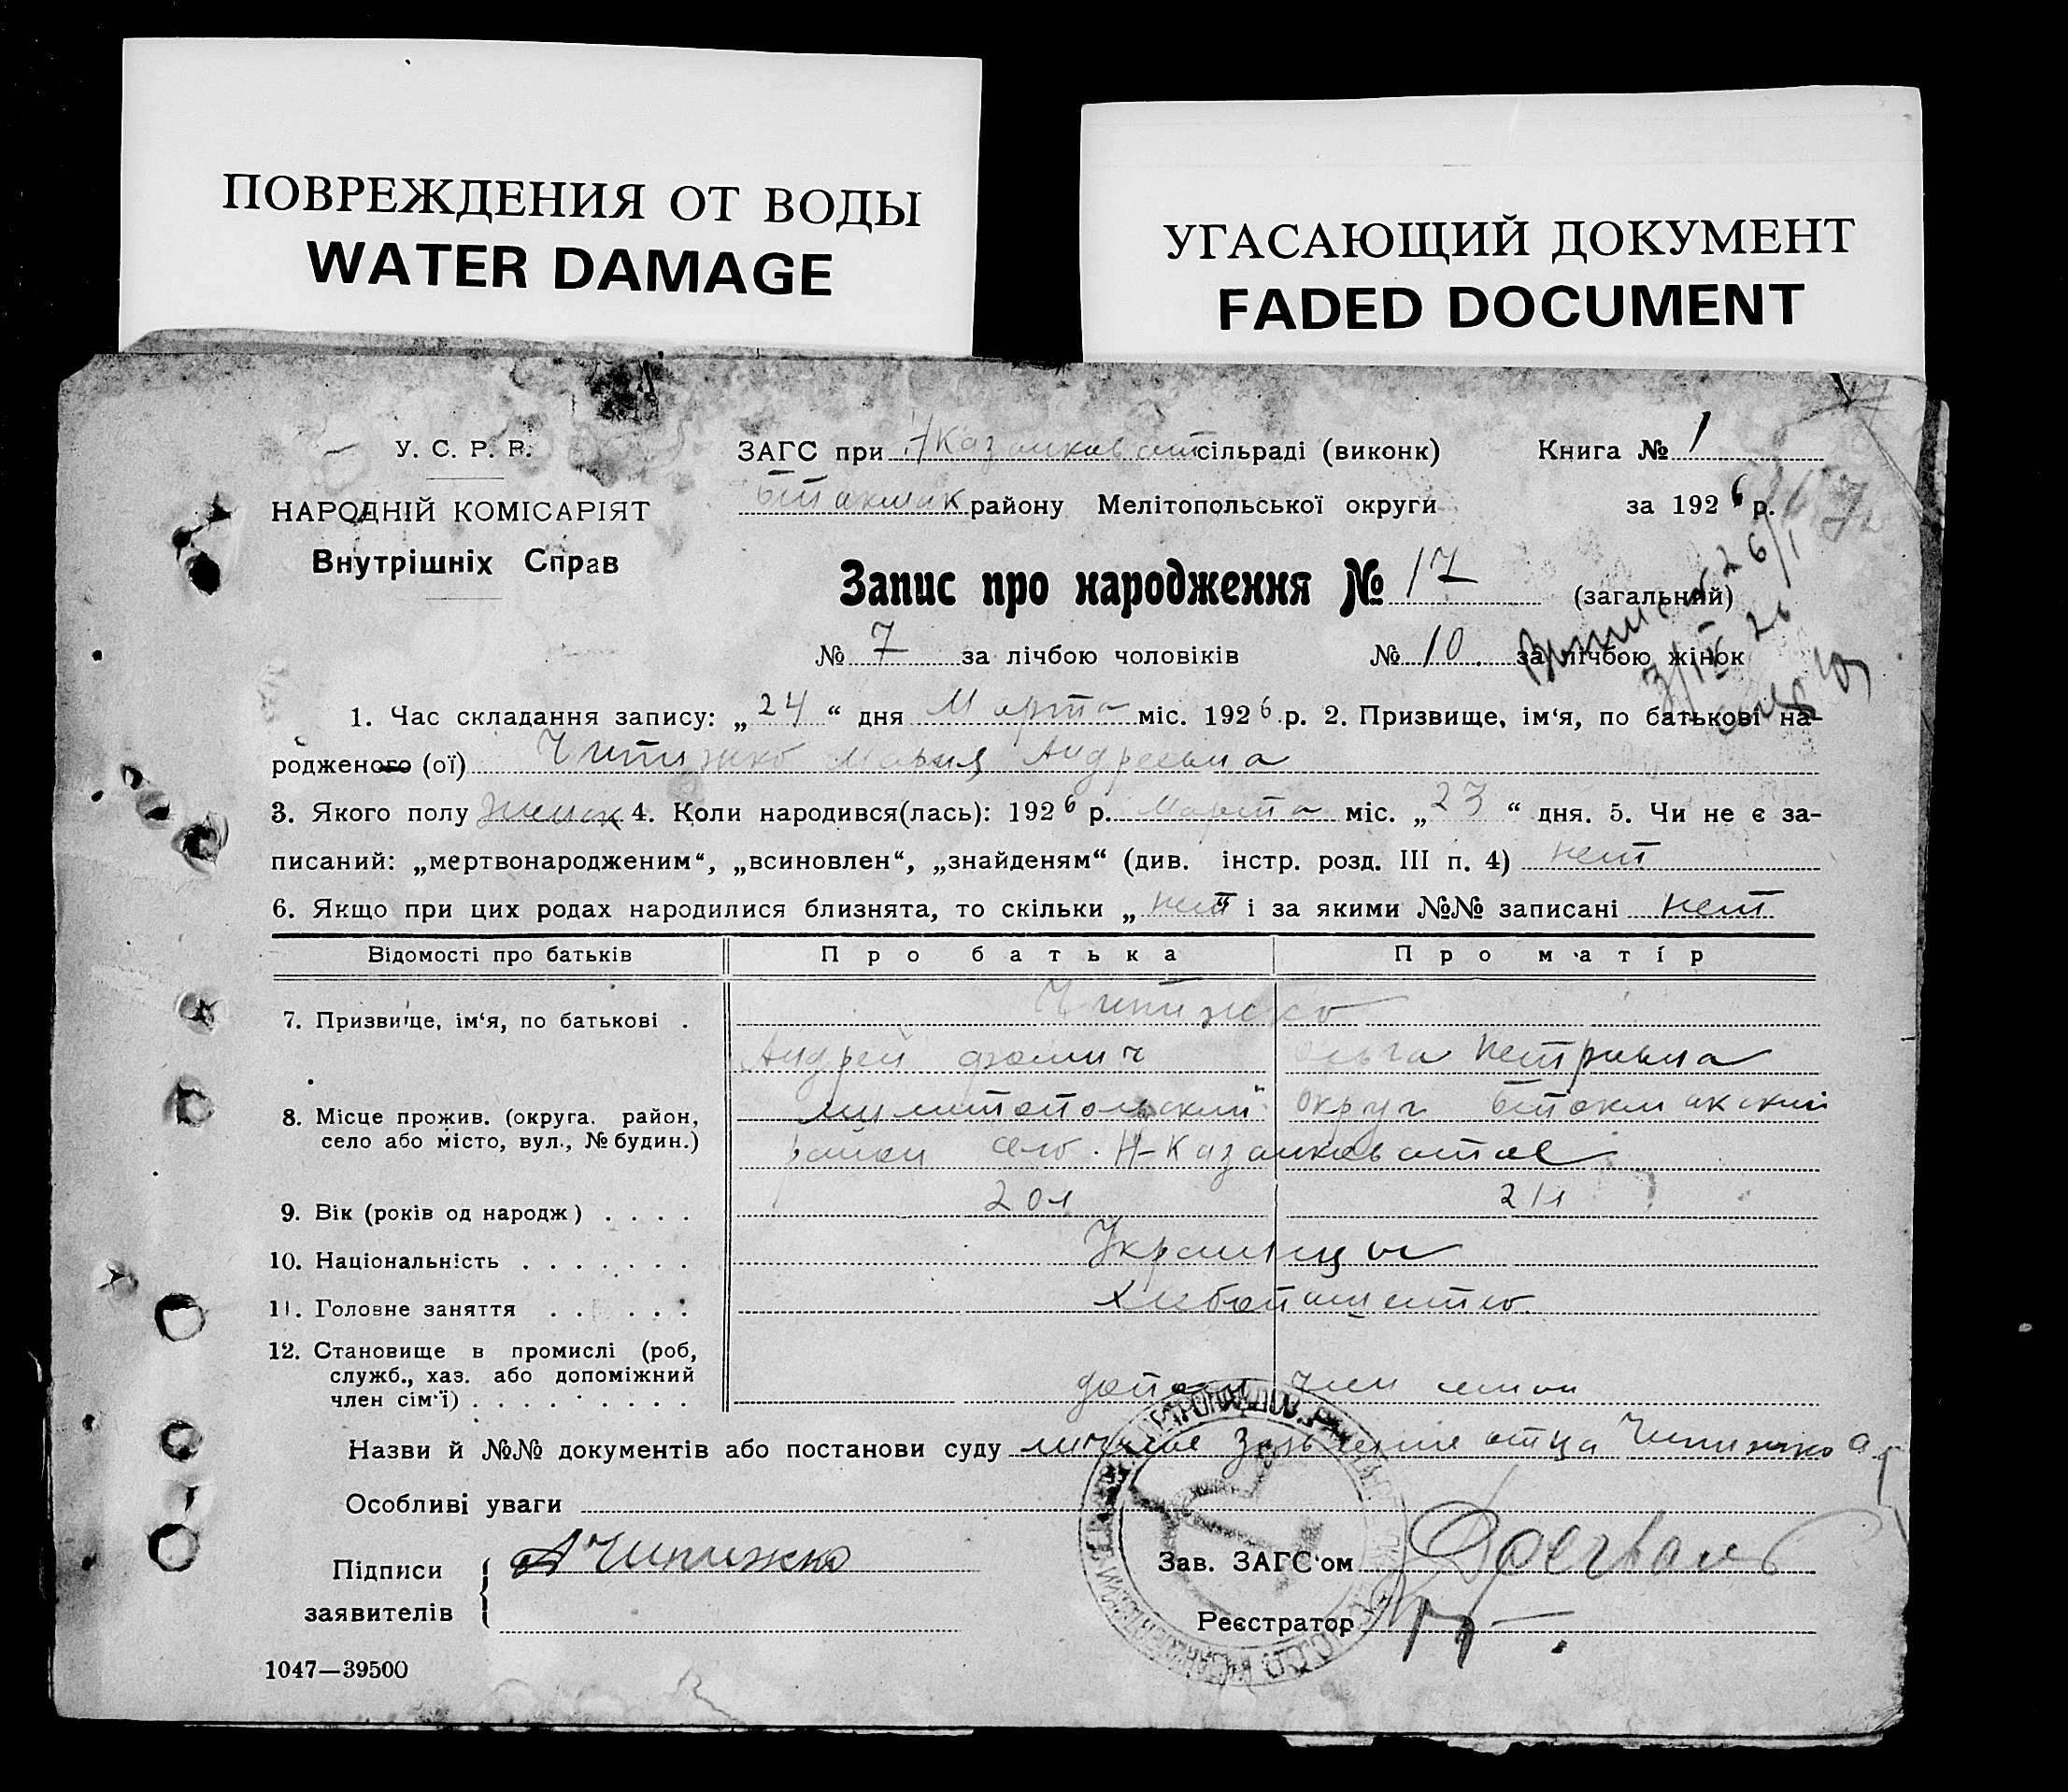 ПОВРЕЖДЕНИЯ ОТ ВОДЫ
WATER DAMAGE
УГАСАЮЩИЙ ДОКУМЕНТ
FADED DOCUMENT
У. С. Р. Р.
НАРОДНІЙ КОМІСАРІЯТ
Внутрішніх Справ
ЗАГС при Н Казанковат сільраді (виконк)
Бтокмак району Мелітопольської округи
Книга № 1
за 1926 р.
Запис про народження № 17 (загальний)
№ 7 за лічбою чоловіків № 10. за лічбою жінок
1. Час складання запису: „24“ дня Марта міс. 1926 р. 2. Призвище, ім‘я, по батькові на-
родженого (ої) Чипижко Мария Андреевна
3. Якого полу женск 4. Коли народився(лась): 1926 р. Марта міс. „23“ дня. 5. Чи не є за-
писаний: „мертвонародженим“, „всиновлен“, „знайденям“ (див. інстр. розд. III п. 4) нет
6. Якщо при цих родах народилися близнята, то скільки „нет“ і за якими №№ записані нет
Відомості про батьків Про батька Про матір
7. Призвище, ім‘я, по батькові . Чипижко
Андрей Фомич Ольга Петривна
8. Місце прожив. (округа. район,
село або місто, вул., № будин.)
Мелитопольский округ Бтокмакский
район село Н-Казанковатое
9. Вік (років од народж) . . . . 20 л 21 л
10. Національність . . . . . . . Украинцы
11. Головне заняття . . . . . . Хлебопашество
12. Становище в промислі (роб,
служб., хаз. або допоміжний
член сім‘ї) . . . . . . . .
допом член семьи
Назви й №№ документів або постанови суду личное заявление отца Чипижко А
Особливі уваги
Підписи
заявителів
АЧипижко
Зав. ЗАГС‘ом
Реєстратор
1047—39500